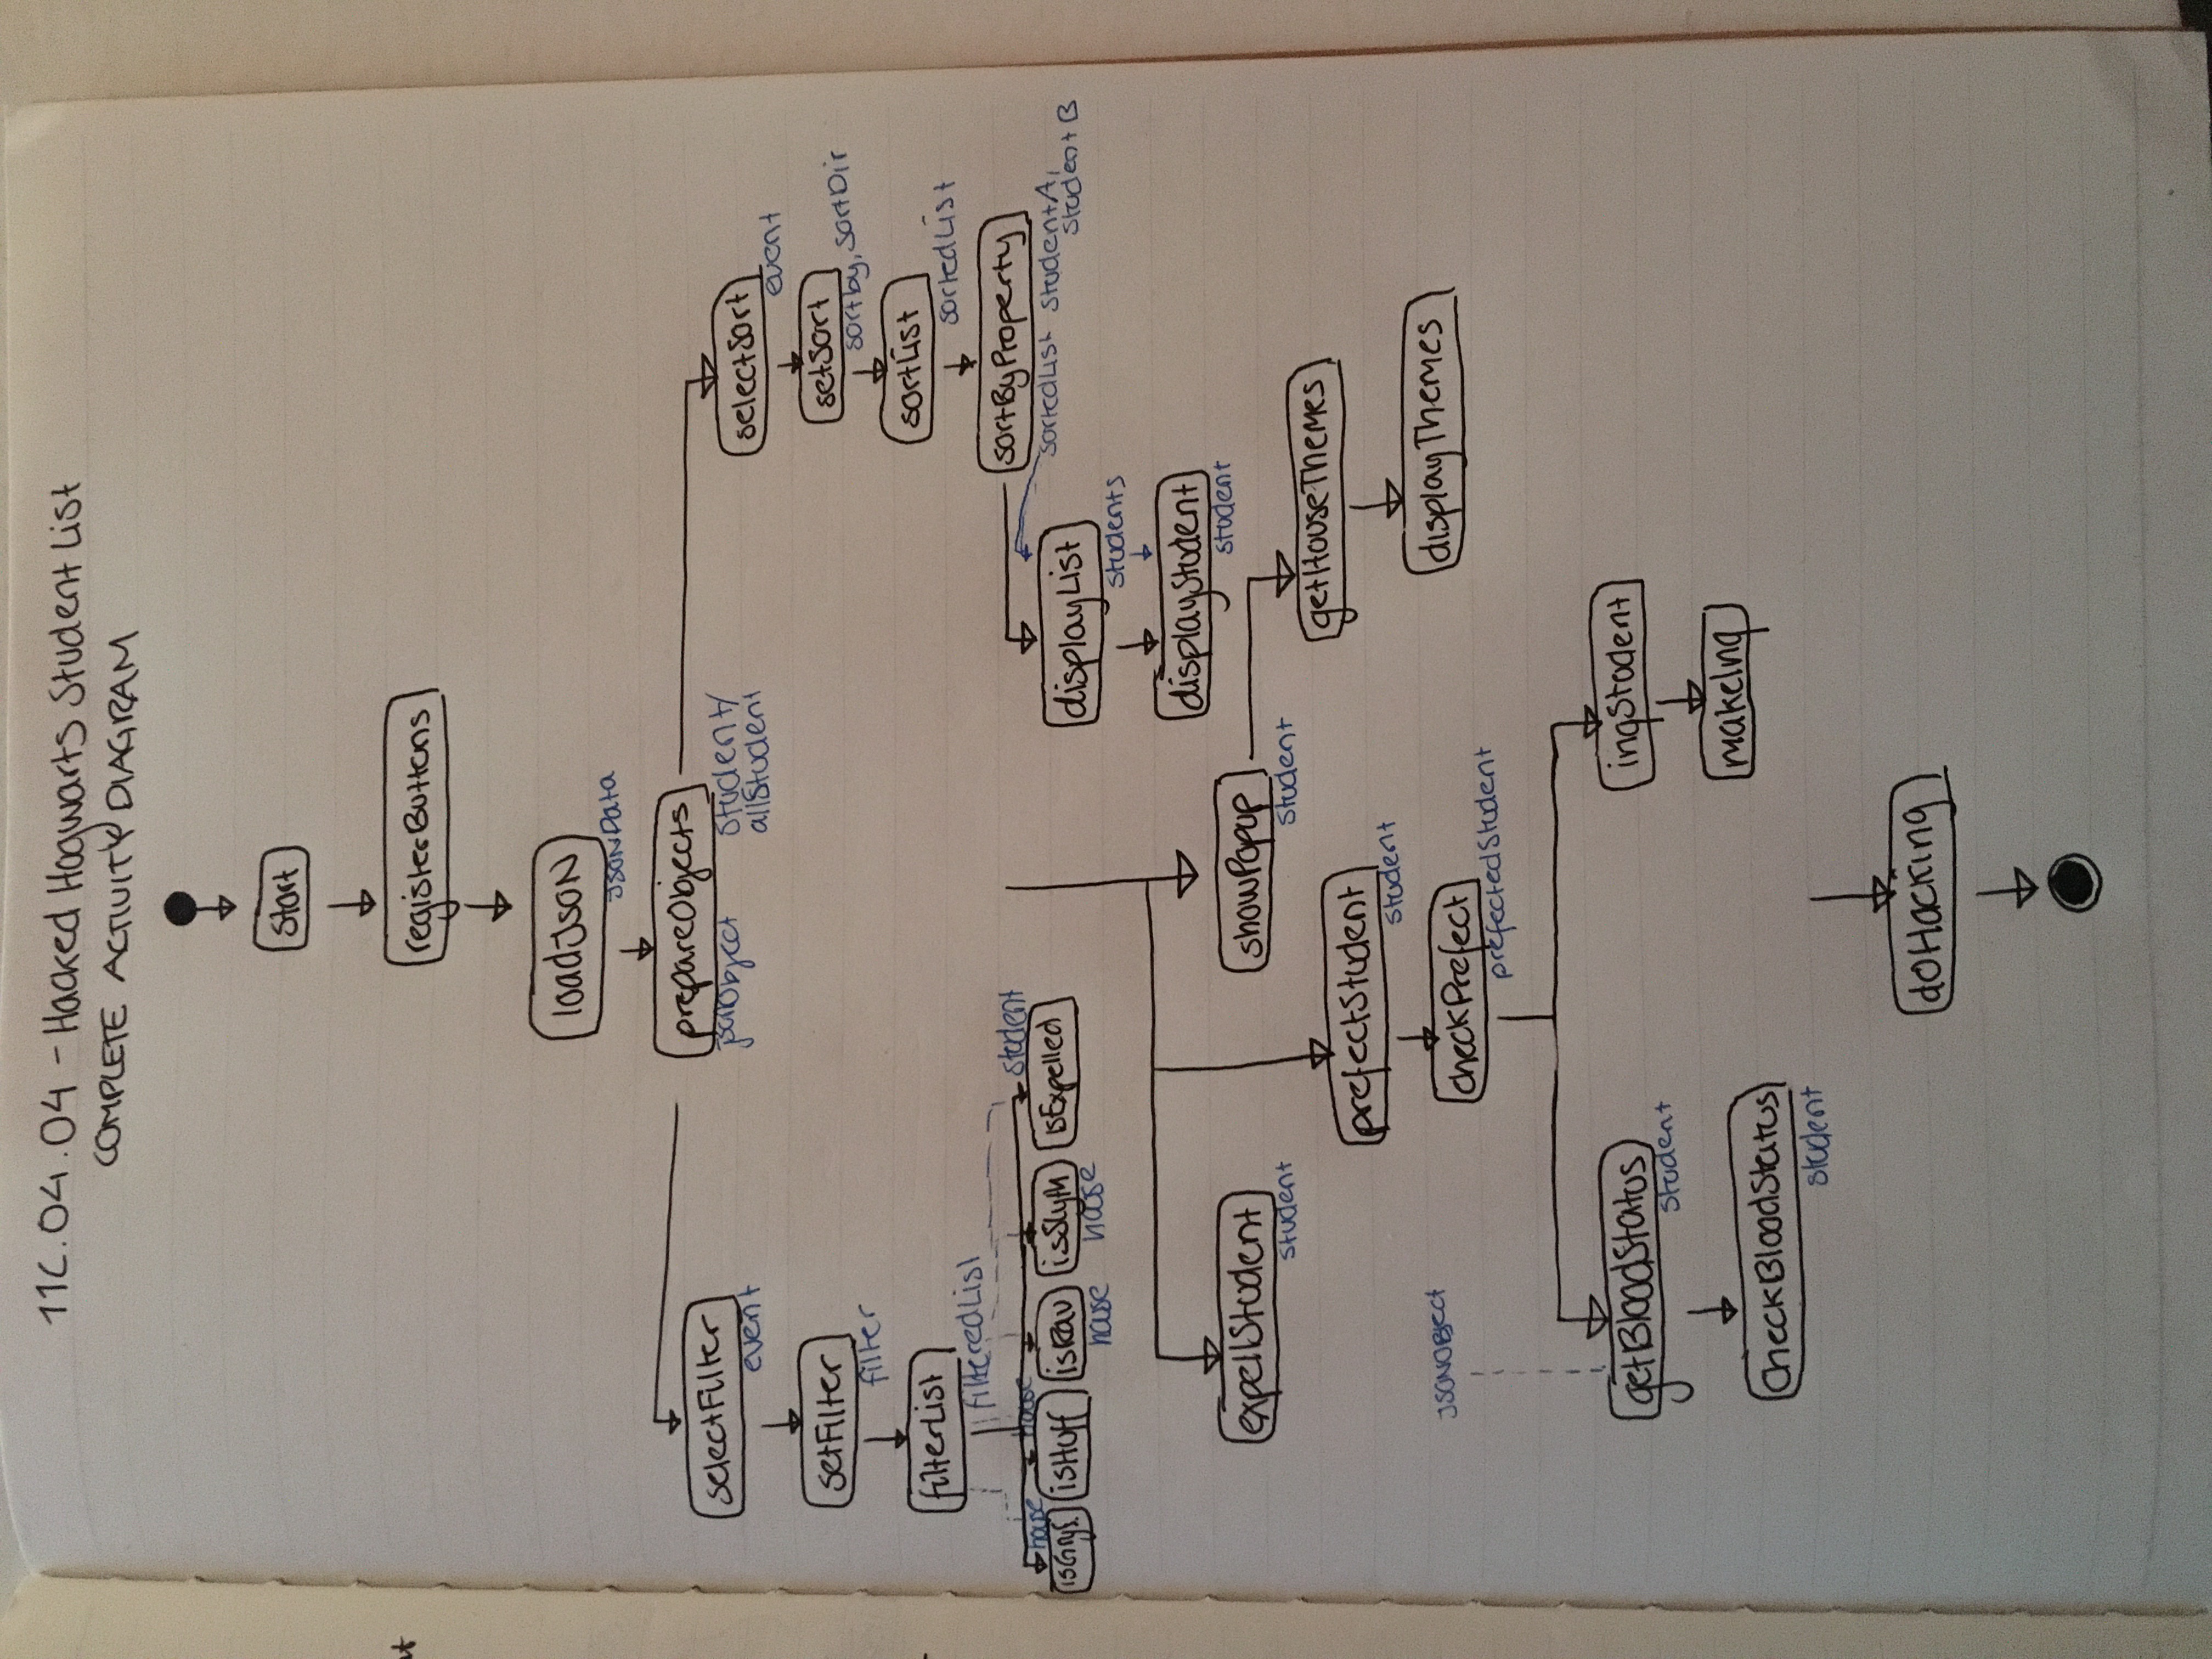 11C.04.04 - Hacked Hogwarts Student List
COMPLETE ACTIVITY DIAGRAM
Start
registerButtons
loadJSON
JSONData
prepareObjects
jsonObject
student/
allStudent
selectFilter
event
setFilter
filter
filterList
filteredList
house
house
student
isGryf.
isHuff
isRav
isSlyth
isExpelled
house
house
selectSort
event
setSort
sortby, sortDir
sortList
sortedList
sortByProperty
sortedList
studentA,
studentB
displayList
students
displayStudent
student
expellStudent
student
showPopup
student
getHouseThemes
displayThemes
prefectStudent
student
checkPrefect
prefectedStudent
JSONObject
getBloodStatus
student
checkBloodStatus
student
inqStudent
makeInq
doHacking